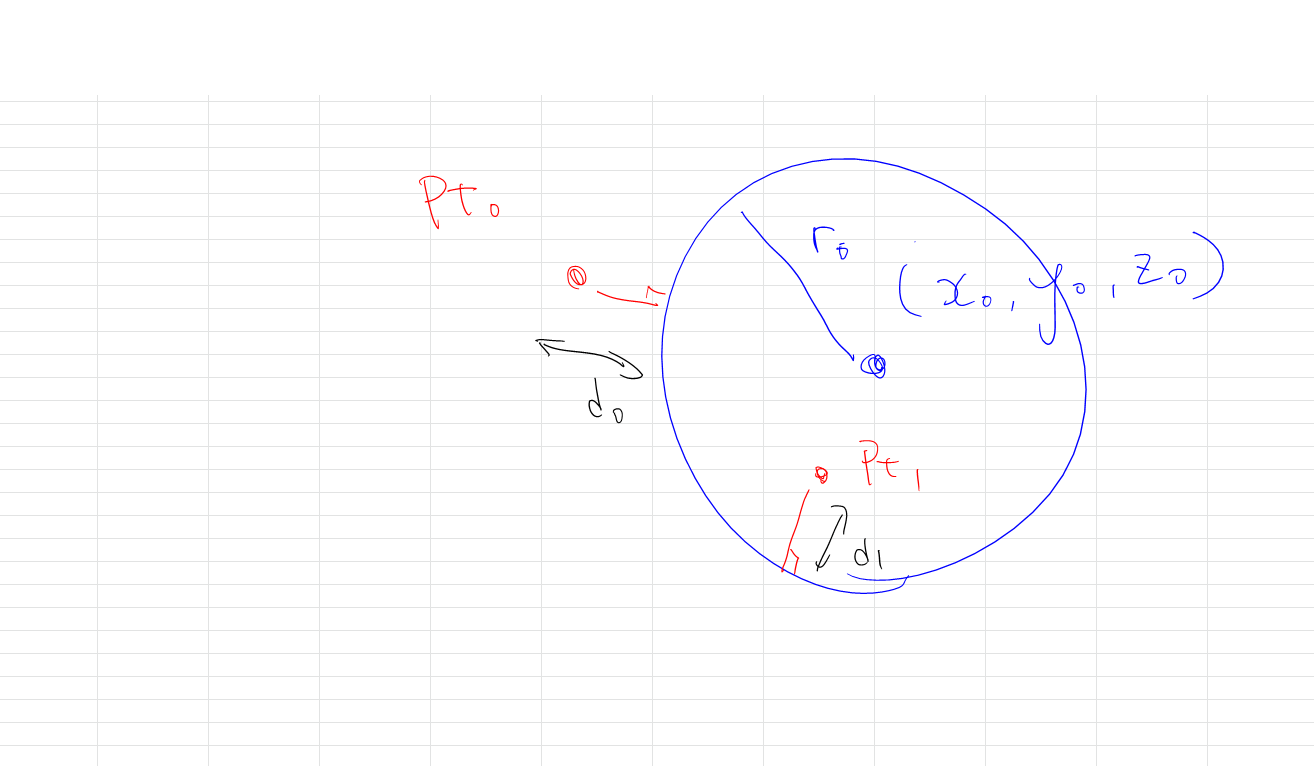 Pt₀
r₀
(x₀, y₀, z₀)
d₀
Pt₁
d₁